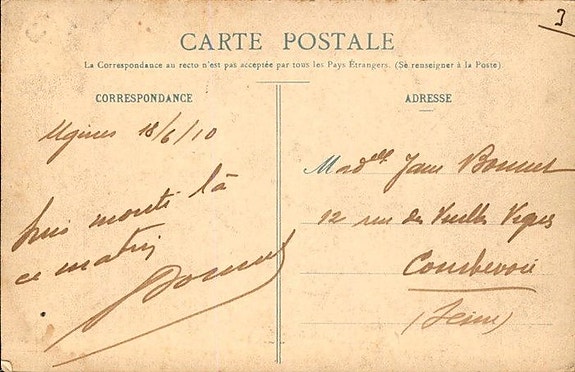 3
CARTE POSTALE
La Correspondance au recto n'est pas acceptée par tous les Pays Étrangers. (Se renseigner à la Poste).
CORRESPONDANCE
ADRESSE
Ugines 18/6/10
suis monté là
ce matin
Bonnet
Mad^elle Jane Bonnet
12 rue des Vieilles Vignes
Courbevoie
(Seine)